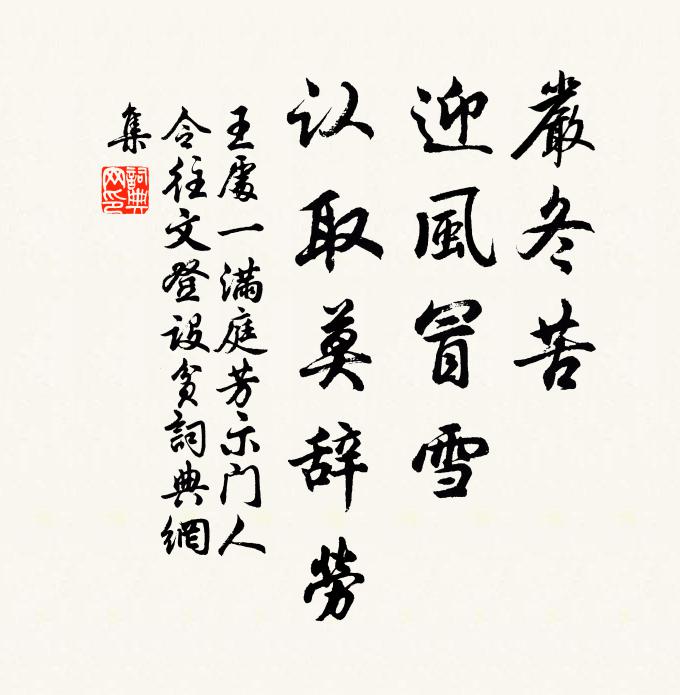 嚴冬苦
迎風冒雪
认取莫辞勞
王處一满庭芳示门人
令往文登設貧詞典網
集
詞典
网印